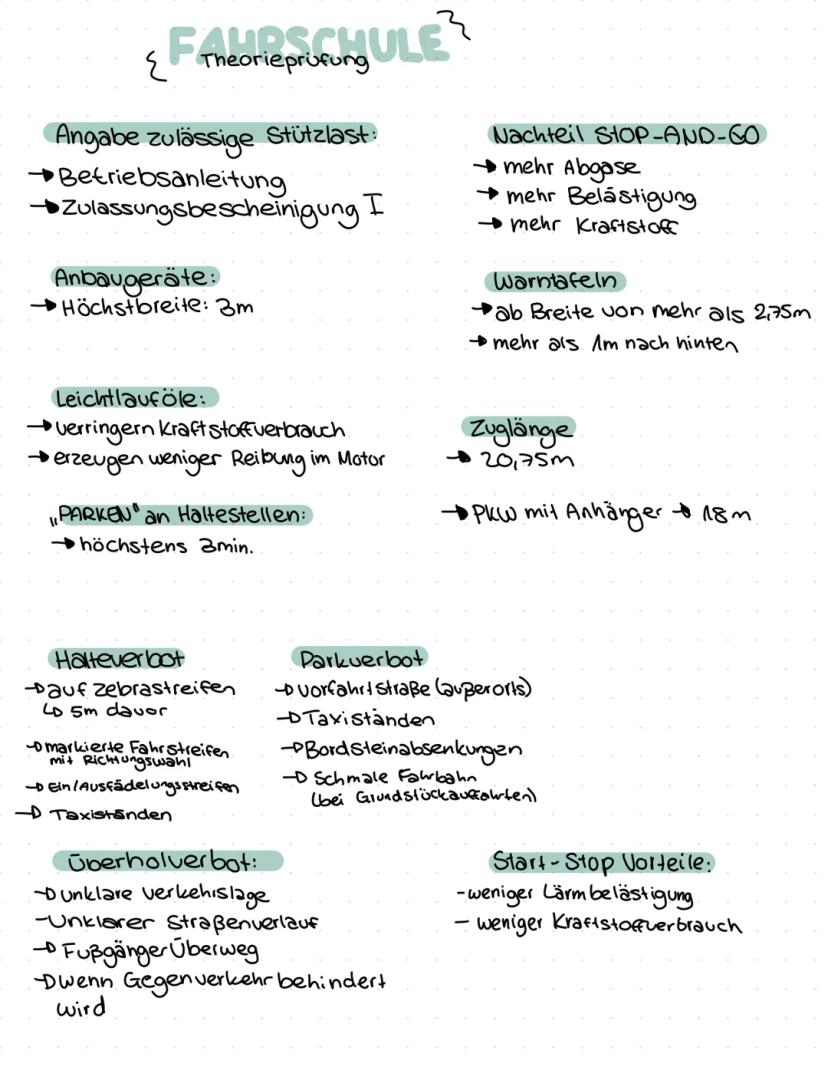 FAHRSCHULE
Theorieprüfung
Angabe zulässige Stützlast:
→ Betriebsanleitung
→ Zulassungsbescheinigung I
Nachteil STOP-AND-GO
→ mehr Abgase
→ mehr Belästigung
→ mehr Kraftstoff
Anbaugeräte:
→ Höchstbreite: 3m
Warntafeln
→ ab Breite von mehr als 2,75m
→ mehr als 1m nach hinten
Leichtlauföle:
→ verringern Kraftstoffverbrauch
→ erzeugen weniger Reibung im Motor
Zuglänge
→ 20,75m
→ PKW mit Anhänger → 18m
„PARKEN" an Haltestellen:
→ höchstens 3min.
Halteverbot
→ auf Zebrastreifen
↳ 5m davor
→ markierte Fahrstreifen
mit Richtungswahl
→ Ein/Ausfädelungsstreifen
→ Taxiständen
Parkverbot
→ Vorfahrtstraße (außerorts)
→ Taxiständen
→ Bordsteinabsenkungen
→ Schmale Fahrbahn
(bei Grundstückauffahrten)
Überholverbot:
→ unklare Verkehrslage
- Unklarer Straßenverlauf
→ Fußgänger Überweg
→ wenn Gegenverkehr behindert
wird
Start-Stop Vorteile:
- weniger Lärmbelästigung
- weniger Kraftstoffverbrauch